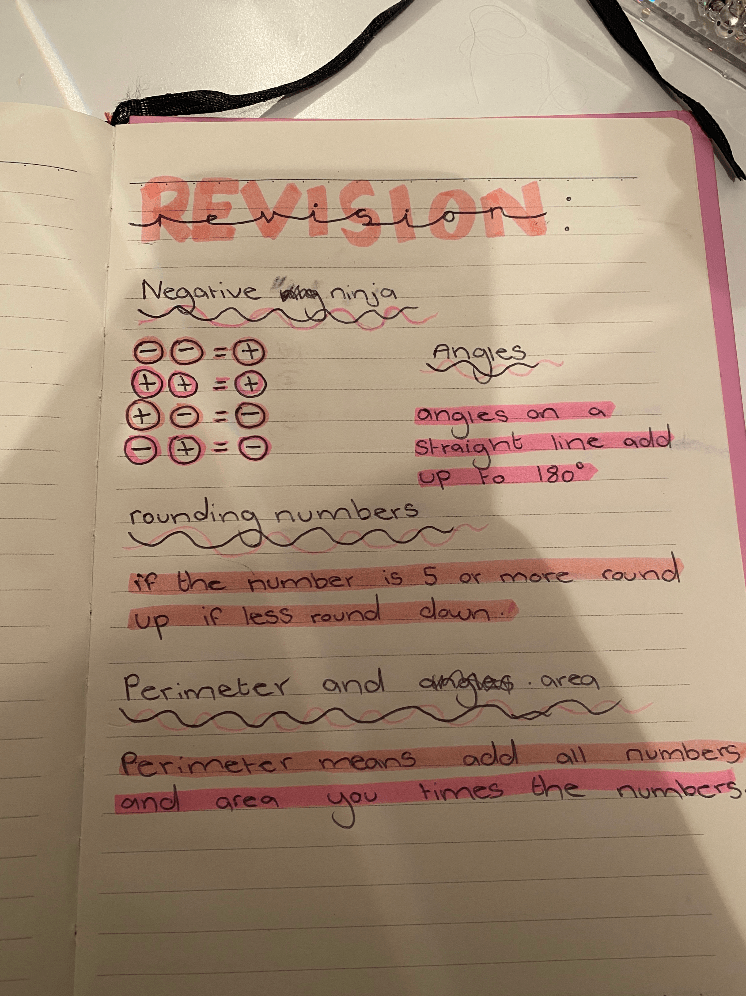 REVISION
revision:
Negative ninja
⊖ ⊖ = ⊕
⊕ ⊕ = ⊕
⊕ ⊖ = ⊖
⊖ ⊕ = ⊖
Angles
angles on a
straight line add
up to 180°
rounding numbers
if the number is 5 or more round
up if less round down.
Perimeter and angles. area
Perimeter means add all numbers
and area you times the numbers.